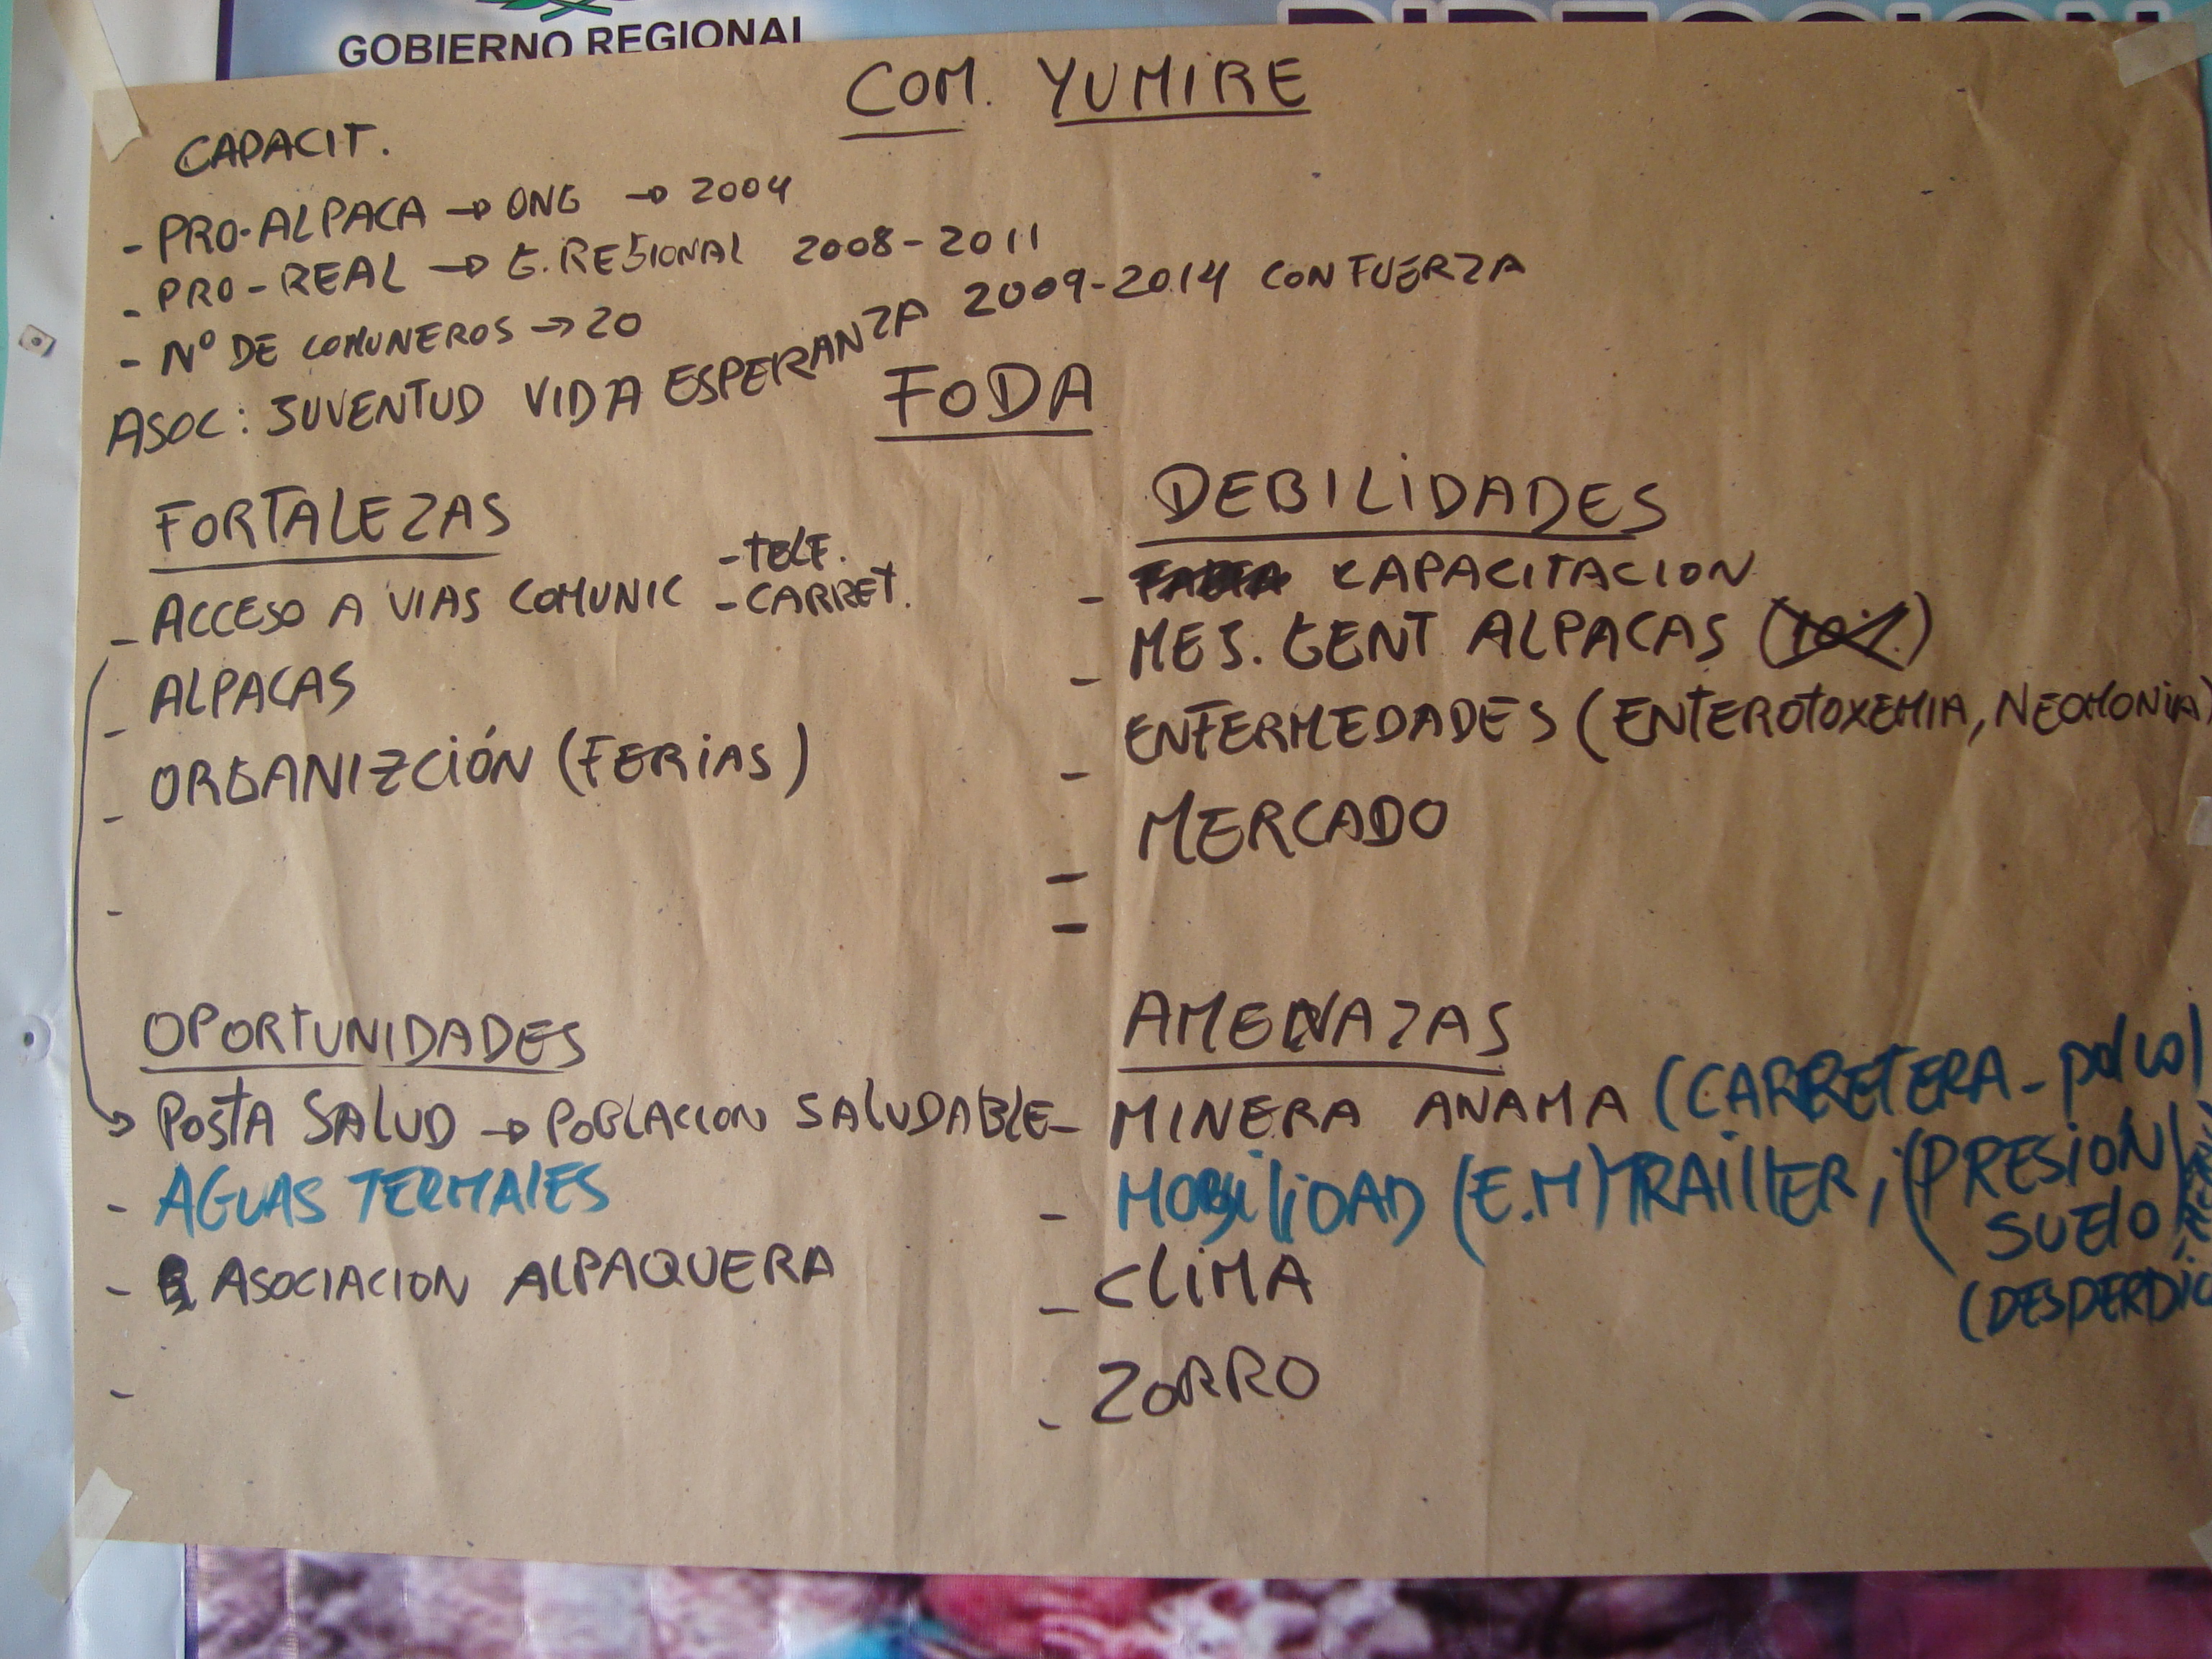 GOBIERNO REGIONAL
DIRECCION
COM. YUMIRE
CAPACIT.
- PRO-ALPACA → ONG → 2004
- PRO-REAL → G. REGIONAL 2008-2011
- Nº DE COMUNEROS → 20
ASOC: JUVENTUD VIDA ESPERANZA 2009-2014 CON FUERZA
FODA
FORTALEZAS
- ACCESO A VIAS COMUNIC - TELF.
- CARRET.
- ALPACAS
- ORGANIZCIÓN (FERIAS)
-
DEBILIDADES
- CAPACITACION
- MEJ. GENT ALPACAS (10%)
- ENFERMEDADES (ENTEROTOXEMIA, NEOMONIA)
- MERCADO
-
OPORTUNIDADES
→ POSTA SALUD → POBLACION SALUDABLE
- AGUAS TERMALES
- ASOCIACION ALPAQUERA
-
AMENAZAS
- MINERA ANAMA (CARRETERA - polvo)
- MOBILIDAD (E.M) TRAILLER, (PRESION
SUELO
(DESPERDIC
- CLIMA
- ZORRO